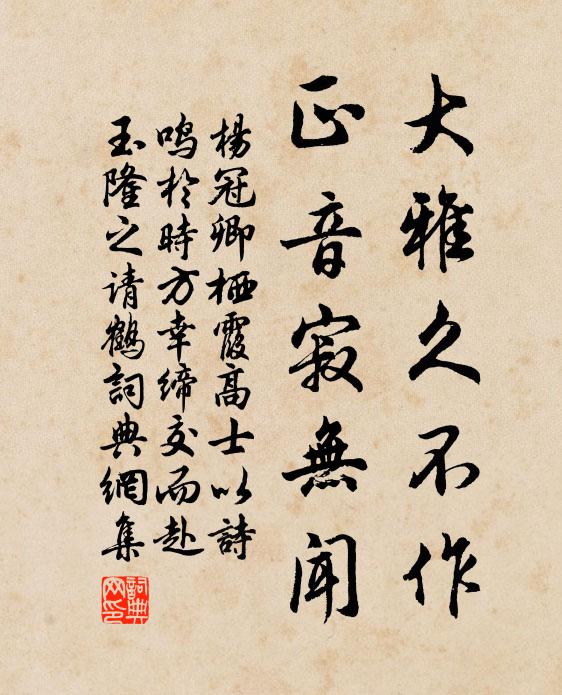 大雅久不作
正音寂無聞
楊冠卿栖霞高士以詩
鳴於時方幸締交而赴
玉隆之请鶴詞典網集
詞典网印